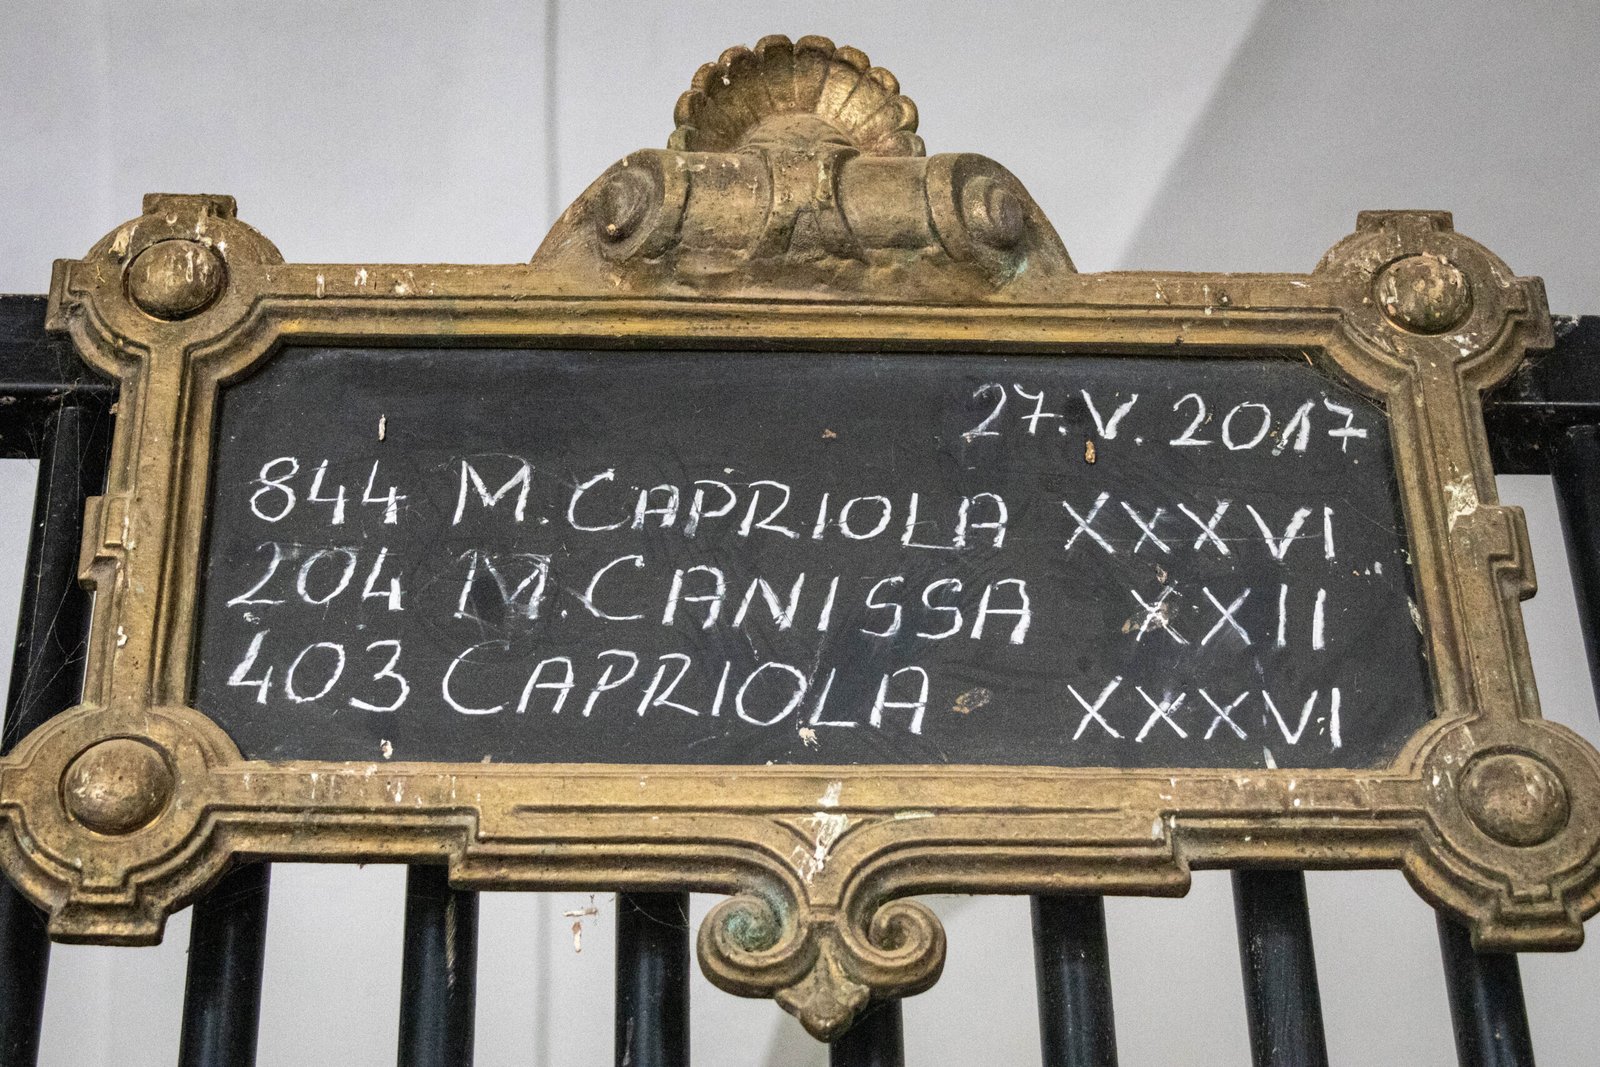 27.V.2017
844 M.CAPRIOLA XXXVI
204 M.CANISSA XXII
403 CAPRIOLA XXXVI